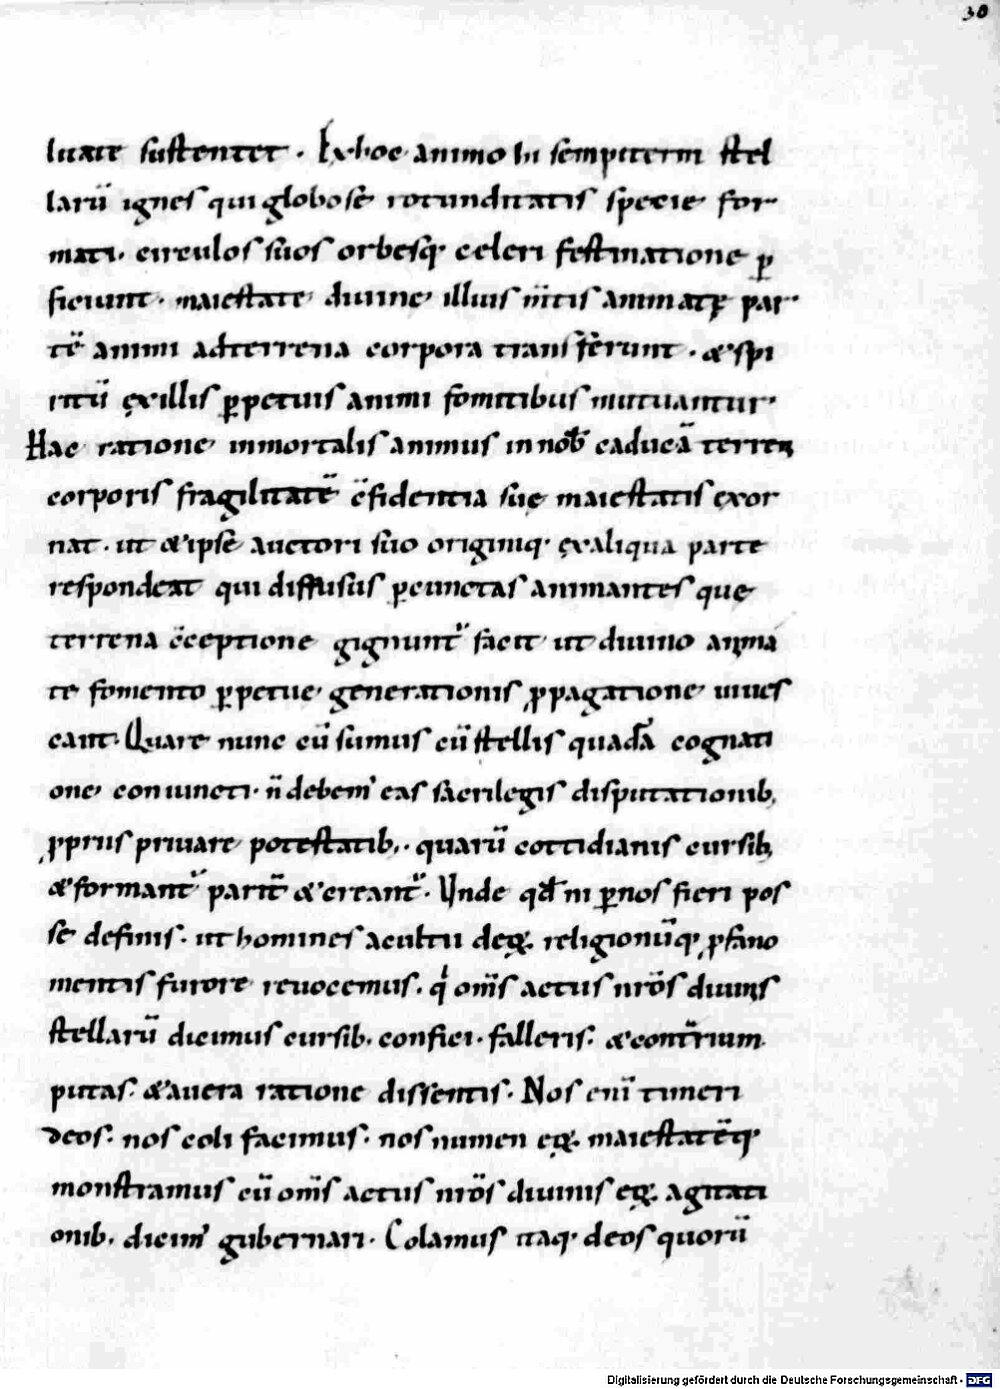 30
luate sustentet. Ex hoc animo In sempiterni stel
larū ignes qui globose rotunditatis specie for
mati. circulos suos orbesq; celeri festinatione p̱
ficiunt. maiestate diuine illius m̄tis animatę par
tē animi ad terrena corpora transferunt. & spi
ritū ex illis p̱petuis animi fomitibus mutuantur
Hac ratione inmortalis animus in nob̄ caducā terreni
corporis fragilitatē c̄fidentia suę maiestatis exor
nat. ut & ipse auctori suo originiq; ex aliqua parte
respondeat qui diffusus p̱ cunctas animantes que
terrena c̄ceptione gignunt᷑ facit ut diuino anima
te fomento p̱petue generationis ꝓpagatione uiues
cant. Quare nunc cū sumus cū stellis quadā cognati
one coniuncti. n̄ debem᾽ eas sacrilegis disputationib;
ꝓpriis priuare potestatib;. quarū cottidianis cursib;
& formant᷑ parit̄ & creant᷑. Unde qđ ni p̱ nos fieri pos
se definis. ut homines a cultu deoꝝ. religionūq; ꝓfano
mentis furore reuocemus. q̇ om̄s actus nr̄os diuinis
stellarū dicimus cursib; confici. falleris. & cont̄rium
putas. & a uera ratione dissentis. Nos enī timeri
deos. nos coli facimus. nos numen eoꝝ. maiestatēq;
monstramus cū om̄s actus nr̄os diuinis eoꝝ. agitati
onib; dicim᾽ gubernari. Colamus itaq; deos quorū
Digitalisierung gefördert durch die Deutsche Forschungsgemeinschaft - DFG